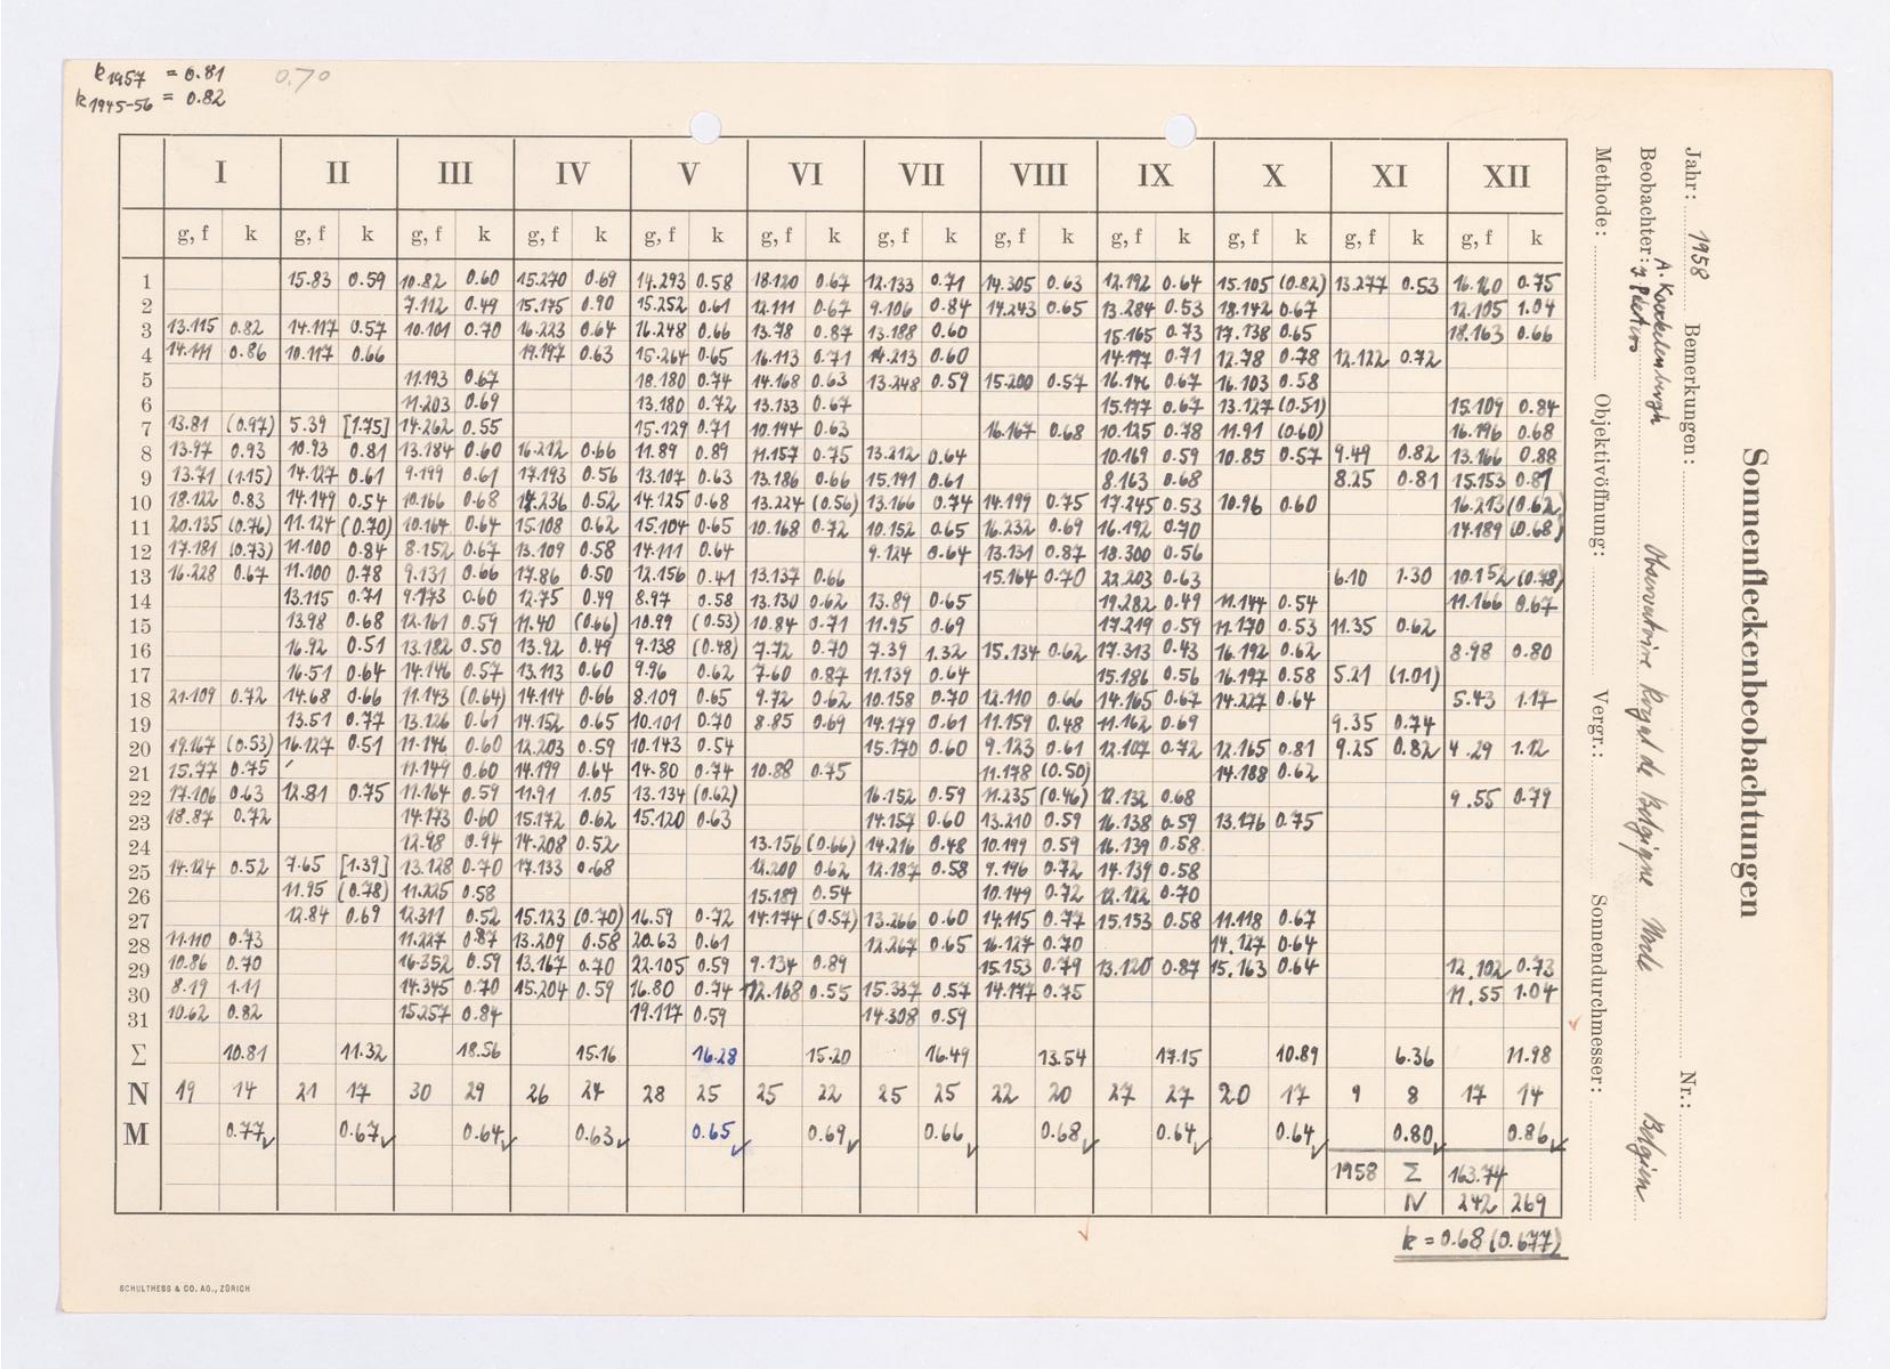 k 1957 = 0.81 0.70
k 1945-56 = 0.82
Sonnenfleckenbeobachtungen
Jahr: 1958 Bemerkungen: Nr.:
Beobachter: A. Koeckelenbergh Observatoire Royal de Belgique Uccle Belgien
Methode: Objektivöffnung: Vergr.: Sonnendurchmesser:
I II III IV V VI VII VIII IX X XI XII
g, f k g, f k g, f k g, f k g, f k g, f k g, f k g, f k g, f k g, f k g, f k g, f k
1 15.83 0.59 10.82 0.60 15.270 0.69 14.293 0.58 18.120 0.67 12.133 0.71 14.305 0.63 12.192 0.64 15.105 (0.82) 13.277 0.53 16.160 0.75
2 7.112 0.49 15.175 0.90 15.252 0.61 12.111 0.67 9.106 0.84 14.243 0.65 13.284 0.53 18.142 0.67 12.105 1.04
3 13.115 0.82 14.117 0.57 10.101 0.70 16.223 0.64 16.248 0.66 13.78 0.87 13.188 0.60 15.165 0.73 17.138 0.65 18.163 0.66
4 14.111 0.86 10.117 0.66 19.197 0.63 15.264 0.65 16.113 0.71 14.213 0.60 14.197 0.71 12.78 0.78 12.122 0.72
5 11.193 0.67 18.180 0.74 14.168 0.63 13.248 0.59 15.200 0.57 16.146 0.67 16.103 0.58
6 11.203 0.69 13.180 0.72 13.133 0.67 15.177 0.67 13.127 (0.51) 15.109 0.84
7 13.81 (0.97) 5.39 [1.75] 14.262 0.55 15.129 0.71 10.194 0.63 16.167 0.68 10.125 0.78 11.91 (0.60) 16.196 0.68
8 13.97 0.93 10.93 0.81 13.184 0.60 16.212 0.66 11.89 0.89 11.157 0.75 13.212 0.64 10.169 0.59 10.85 0.57 9.49 0.82 13.166 0.88
9 13.71 (1.15) 14.127 0.61 9.199 0.61 17.193 0.56 13.107 0.63 13.186 0.66 15.191 0.61 8.163 0.68 8.25 0.81 15.153 0.81
10 18.122 0.83 14.149 0.54 10.166 0.68 14.236 0.52 14.125 0.68 13.224 (0.56) 13.166 0.74 14.199 0.75 17.245 0.53 10.96 0.60 16.213 (0.62)
11 20.135 (0.76) 11.124 (0.70) 10.164 0.64 15.108 0.62 15.104 0.65 10.168 0.72 10.152 0.65 16.232 0.69 16.192 0.70 14.189 (0.68)
12 17.181 (0.73) 11.100 0.84 8.152 0.67 13.109 0.58 14.111 0.64 9.124 0.64 13.131 0.87 18.300 0.56
13 16.228 0.67 11.100 0.78 9.131 0.66 17.86 0.50 12.156 0.41 13.137 0.66 15.164 0.70 22.203 0.63 6.10 1.30 10.152 (0.78)
14 13.115 0.71 9.173 0.60 12.75 0.49 8.97 0.58 13.130 0.62 13.89 0.65 19.282 0.49 11.144 0.54 11.166 0.67
15 13.98 0.68 12.161 0.59 11.40 (0.66) 10.99 (0.53) 10.84 0.71 11.95 0.69 17.219 0.59 11.170 0.53 11.35 0.62
16 16.92 0.51 13.182 0.50 13.92 0.49 9.138 (0.48) 7.72 0.70 7.39 1.32 15.134 0.62 17.313 0.43 16.192 0.62 8.98 0.80
17 16.51 0.64 14.146 0.57 13.113 0.60 9.96 0.62 7.60 0.87 11.139 0.64 15.186 0.56 16.197 0.58 5.21 (1.01)
18 21.109 0.72 14.68 0.66 11.143 (0.64) 14.114 0.66 8.109 0.65 9.72 0.62 10.158 0.70 12.110 0.66 14.165 0.67 14.227 0.64 5.43 1.17
19 13.51 0.77 13.126 0.61 14.152 0.65 10.101 0.70 8.85 0.69 14.179 0.61 11.159 0.48 11.162 0.69 9.35 0.74
20 19.167 (0.53) 16.127 0.51 11.146 0.60 12.203 0.59 10.143 0.54 15.170 0.60 9.123 0.61 12.107 0.72 12.165 0.81 9.25 0.82 4.29 1.12
21 15.77 0.75 11.149 0.60 14.199 0.64 14.80 0.74 10.88 0.75 11.178 (0.50) 14.188 0.62
22 17.106 0.63 12.81 0.75 11.164 0.59 11.91 1.05 13.134 (0.62) 16.152 0.59 11.235 (0.46) 12.132 0.68 9.55 0.79
23 18.87 0.72 14.173 0.60 15.172 0.62 15.120 0.63 14.157 0.60 13.210 0.59 16.138 0.59 13.176 0.75
24 12.98 0.94 14.208 0.52 13.156 (0.66) 14.216 0.48 10.199 0.59 16.139 0.58
25 14.124 0.52 7.65 [1.39] 13.128 0.70 17.133 0.68 12.200 0.62 12.187 0.58 9.196 0.72 14.139 0.58
26 11.95 (0.78) 11.225 0.58 15.189 0.54 10.149 0.72 12.122 0.70
27 12.84 0.69 12.311 0.52 15.123 (0.70) 16.59 0.72 14.174 (0.57) 13.266 0.60 14.115 0.77 15.153 0.58 11.118 0.67
28 11.110 0.73 11.227 0.87 13.209 0.58 20.63 0.61 12.267 0.65 16.127 0.70 14.127 0.64
29 10.86 0.70 16.352 0.59 13.167 0.70 22.105 0.59 9.134 0.89 15.153 0.79 13.120 0.87 15.163 0.64 12.102 0.73
30 8.19 1.11 14.345 0.70 15.204 0.59 16.80 0.74 12.168 0.55 15.337 0.57 14.177 0.75 11.55 1.04
31 10.62 0.82 15.257 0.84 19.117 0.59 14.308 0.59
Σ 10.81 11.32 18.56 15.16 16.28 15.20 16.49 13.54 17.15 10.89 6.36 11.98
N 19 14 21 17 30 29 26 24 28 25 25 22 25 25 22 20 27 27 20 17 9 8 17 14
M 0.77 0.67 0.64 0.63 0.65 0.69 0.66 0.68 0.64 0.64 0.80 0.86
1958 Σ 163.74
N 242 269
k = 0.68 (0.677)
SCHULTHESS & CO. AG., ZÜRICH